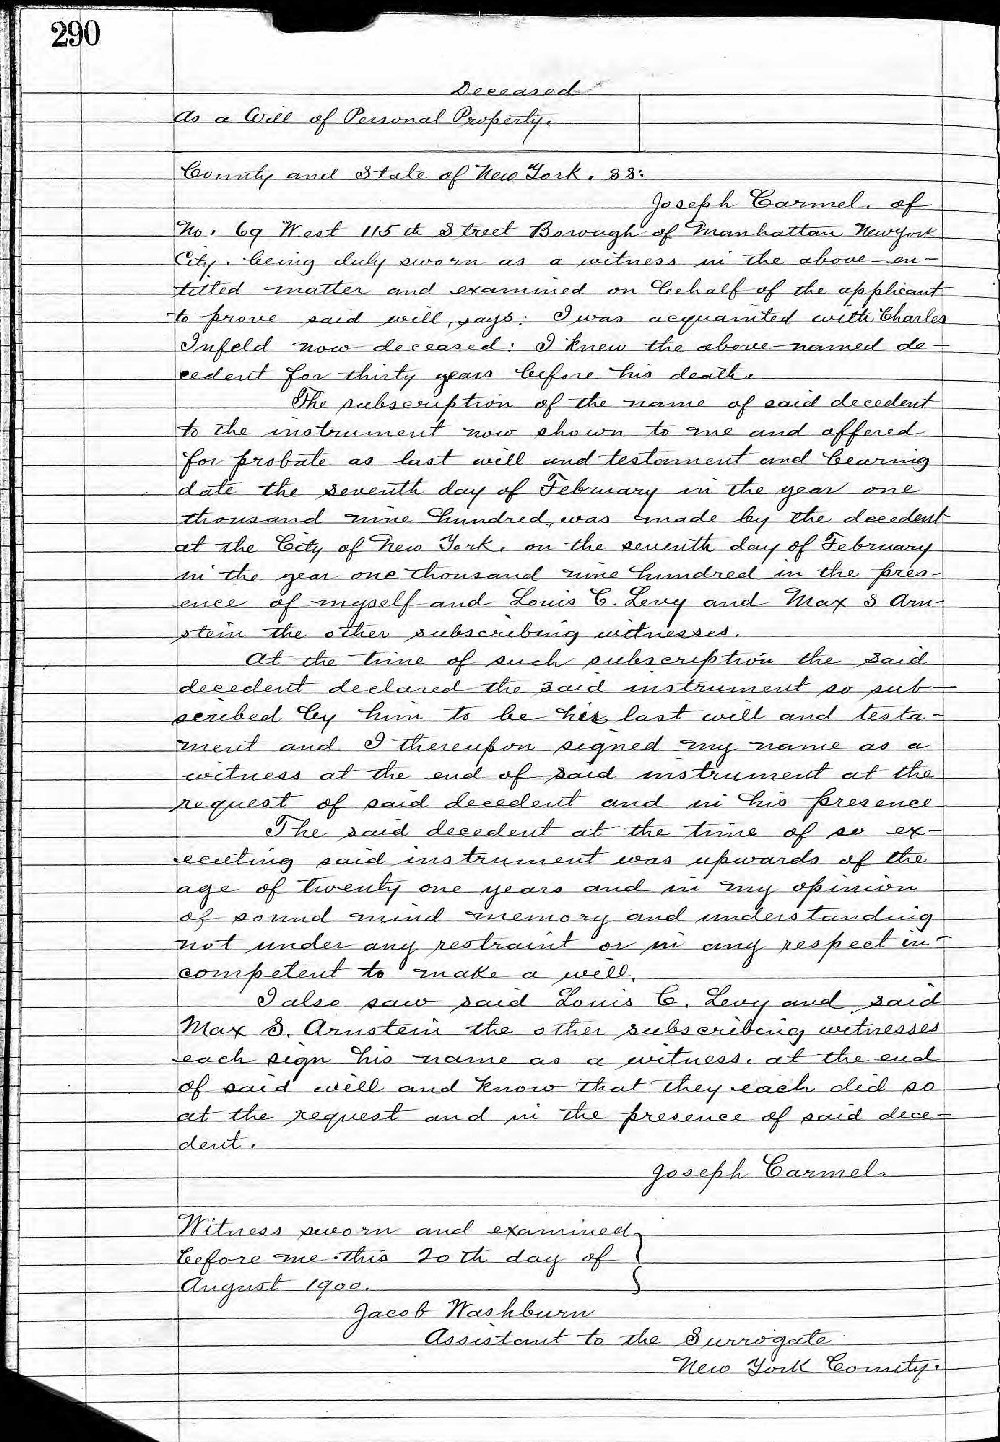 290
Deceased
As a Will of Personal Property.
County and State of New York. SS:
Joseph Carmel. of
No. 69 West 115th Street Borough of Manhattan New York
City. being duly sworn as a witness in the above-en-
titled matter and examined on behalf of the applicant
to prove said will, says: I was acquainted with Charles
Infeld now deceased: I knew the above-named de-
cedent for thirty years before his death.
The subscription of the name of said decedent
to the instrument now shown to me and offered
for probate as last will and testament and bearing
date the seventh day of February in the year one
thousand nine hundred, was made by the decedent
at the City of New York, on the seventh day of February
in the year one thousand nine hundred in the pres-
ence of myself and Louis C. Levy and Max S Arn-
stein the other subscribing witnesses.
At the time of such subscription the said
decedent declared the said instrument so sub-
scribed by him to be his last will and testa-
ment and I thereupon signed my name as a
witness at the end of said instrument at the
request of said decedent and in his presence
The said decedent at the time of so ex-
ecuting said instrument was upwards of the
age of twenty one years and in my opinion
of sound mind memory and understanding
not under any restraint or in any respect in-
competent to make a will.
I also saw said Louis C. Levy and said
Max S. Arnstein the other subscribing witnesses
each sign his name as a witness. at the end
of said will and know that they each did so
at the request and in the presence of said dece-
dent.
Joseph Carmel.
Witness sworn and examined
before me this 20th day of
August 1900.
Jacob Washburn
Assistant to the Surrogate
New York County.